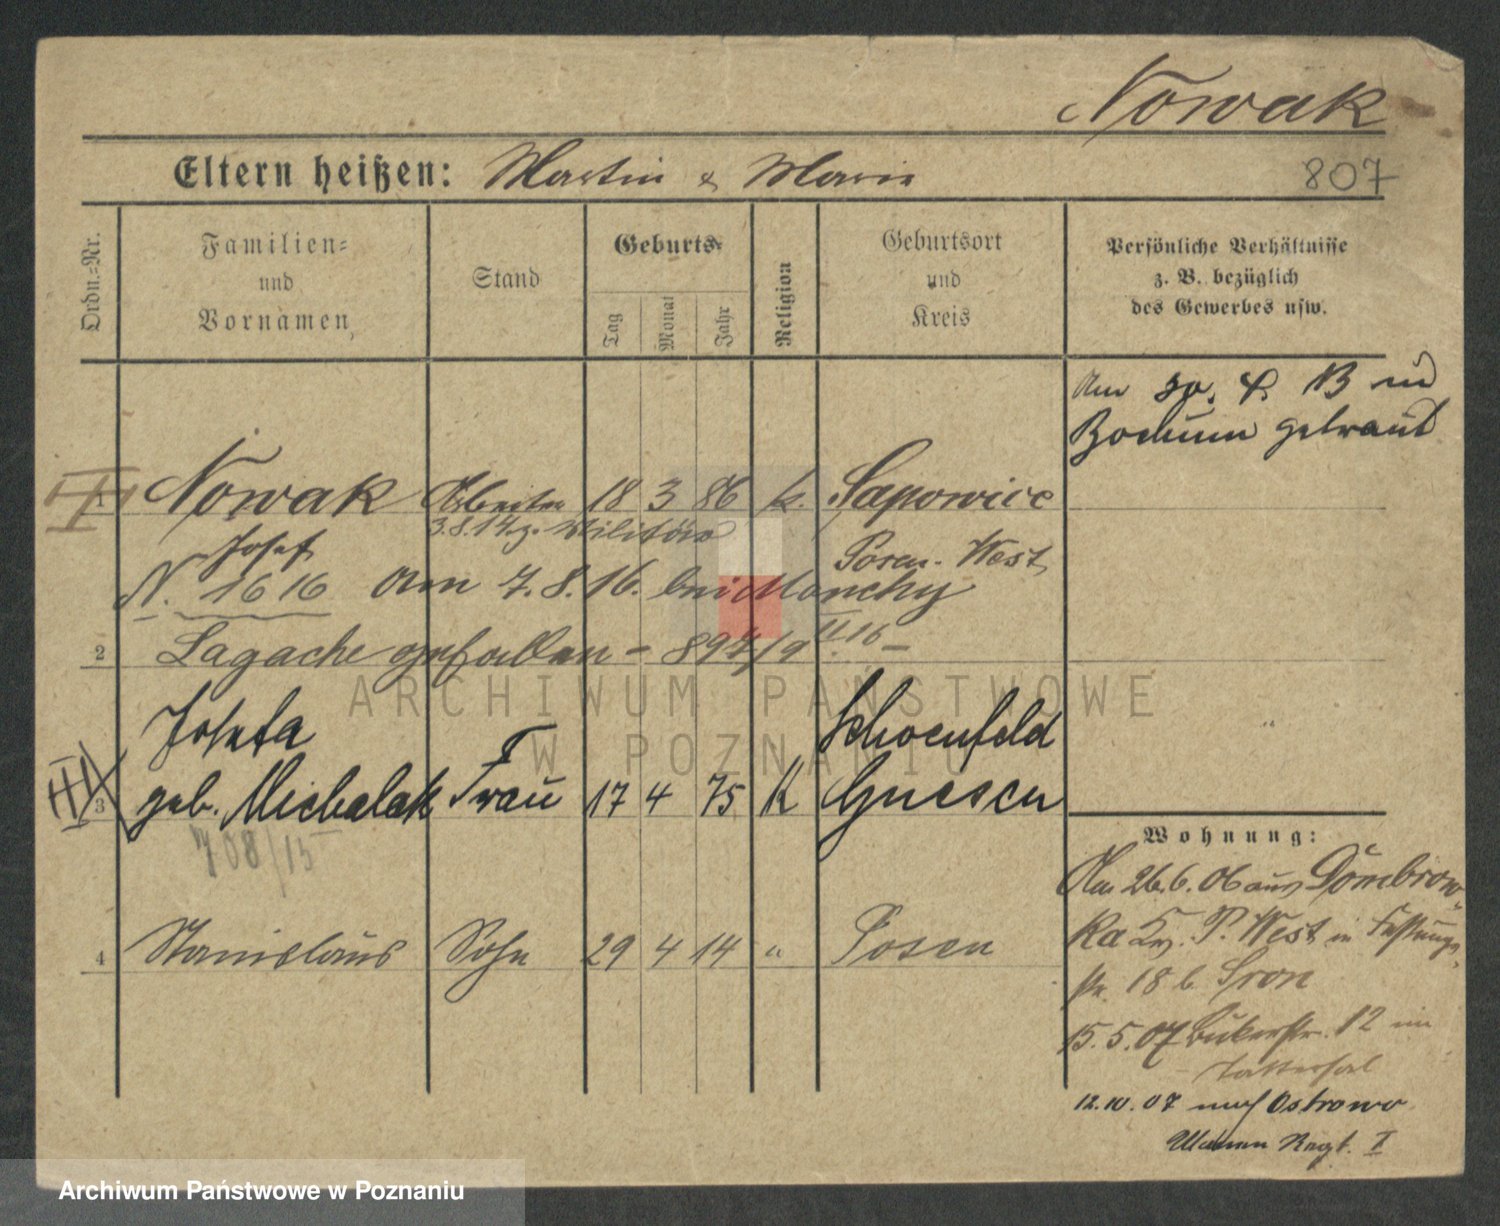 Nowak
Eltern heißen: Martin & Marie
807
Ordn.=Nr.
Familien=
und
Vornamen
Stand
Geburts=
Tag
Monat
Jahr
Religion
Geburtsort
und
Kreis
Persönliche Verhältnisse
z. B. bezüglich
des Gewerbes usw.
Am 30. 13 in
Bochum getraut
1 Nowak Arbeiter 18 3 86 k. Sapowice
3.8.14 z. Militär
Josef Posen-West
N. 1616 am 7.8.16. bei Monchy
2 Lagache gefallen - 894/19 II.16 -
ARCHIWUM PAŃSTWOWE
W POZNANIU
Josefa Schoenfeld
3 geb. Michalak Frau 17 4 75 K Gnesen
708/15
Wohnung:
4 Stanislaus Sohn 29 4 14 " Posen
Am 26.6.06 aus Dombrow-
ka Kr. P. West in Festungs-
str. 18 b.
15.5.07 Bukerstr. 12 im
Tattersal
12.10.07 nach Ostrowo
Ulanen Regt. I
Archiwum Państwowe w Poznaniu